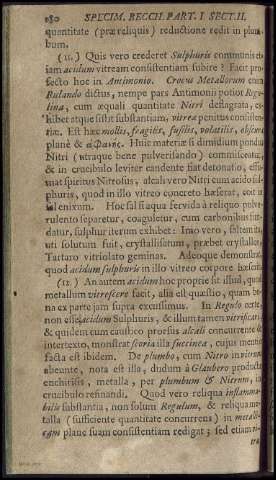 280 SPECIM. BECCH. PART. I SECT. II.
quantitate (præ reliquis) reductione redit in plum-
bum.
(11.) Quis vero crederet Sulphuris communis et-
iam acidum vitream consistentiam subire? Facit pro-
fecto hoc in Antimonio. Crocus Metallorum cum
Rulando dictus, nempe pars Antimonii potior Regu-
lina, cum æquali quantitate Nitri deflagrata, ex-
hibet atque sistit substantiam, vitreæ penitus consisten-
tiæ. Est hæc mollis, fragilis, fusilis, volatilis,
plane &
Huic materiæ si dimidium pondus
Nitri (utraque bene pulverisando) commisceatur,
& in crucibulo leviter candente fiat detonatio, efflu-
mat spiritus Nitrosus, alcali vero Nitri cum acido sul-
phuris, quod in illo vitreo concreto hæserat, coit in
sal enixum. Hoc sal si aqua fervida à reliquo pulve-
rulento separetur, coaguletur, cum carbonibus fun-
datur, sulphur iterum exhibet: Imo vero, saltem si,
uti solutum fuit, crystallisetur, præbet crystallos
Tartaro vitriolato geminas. Adeoque demonstrat,
quod acidum sulphuris in illo vitreo corpore hæserit.
(12.) An autem acidum hoc proprie sit illud, quod
metallum vitrescere facit, alia est quæstio, quam bo-
na ex parte jam supra excussimus. In Regulo certe,
non est acidum Sulphuris, & illum tamen vitrificari
& quidem cum caustico prorsus alcali concurrente &
intertexto, monstrat scoria illa succinea, cujus mentio
facta est ibidem. De plumbo, cum Nitro in vitrum
abeunte, nota est illa, dudum à Glaubero producta
enchirisis, metalla, per plumbum & Nitrum, in
crucibulo refinandi. Quod vero reliqua inflamma-
bilis substantia, non solum Regulum, & reliqua me-
talla (sufficiente quantitate concurrens) in metalli-
cam plane suam consistentiam redigat; sed etiam